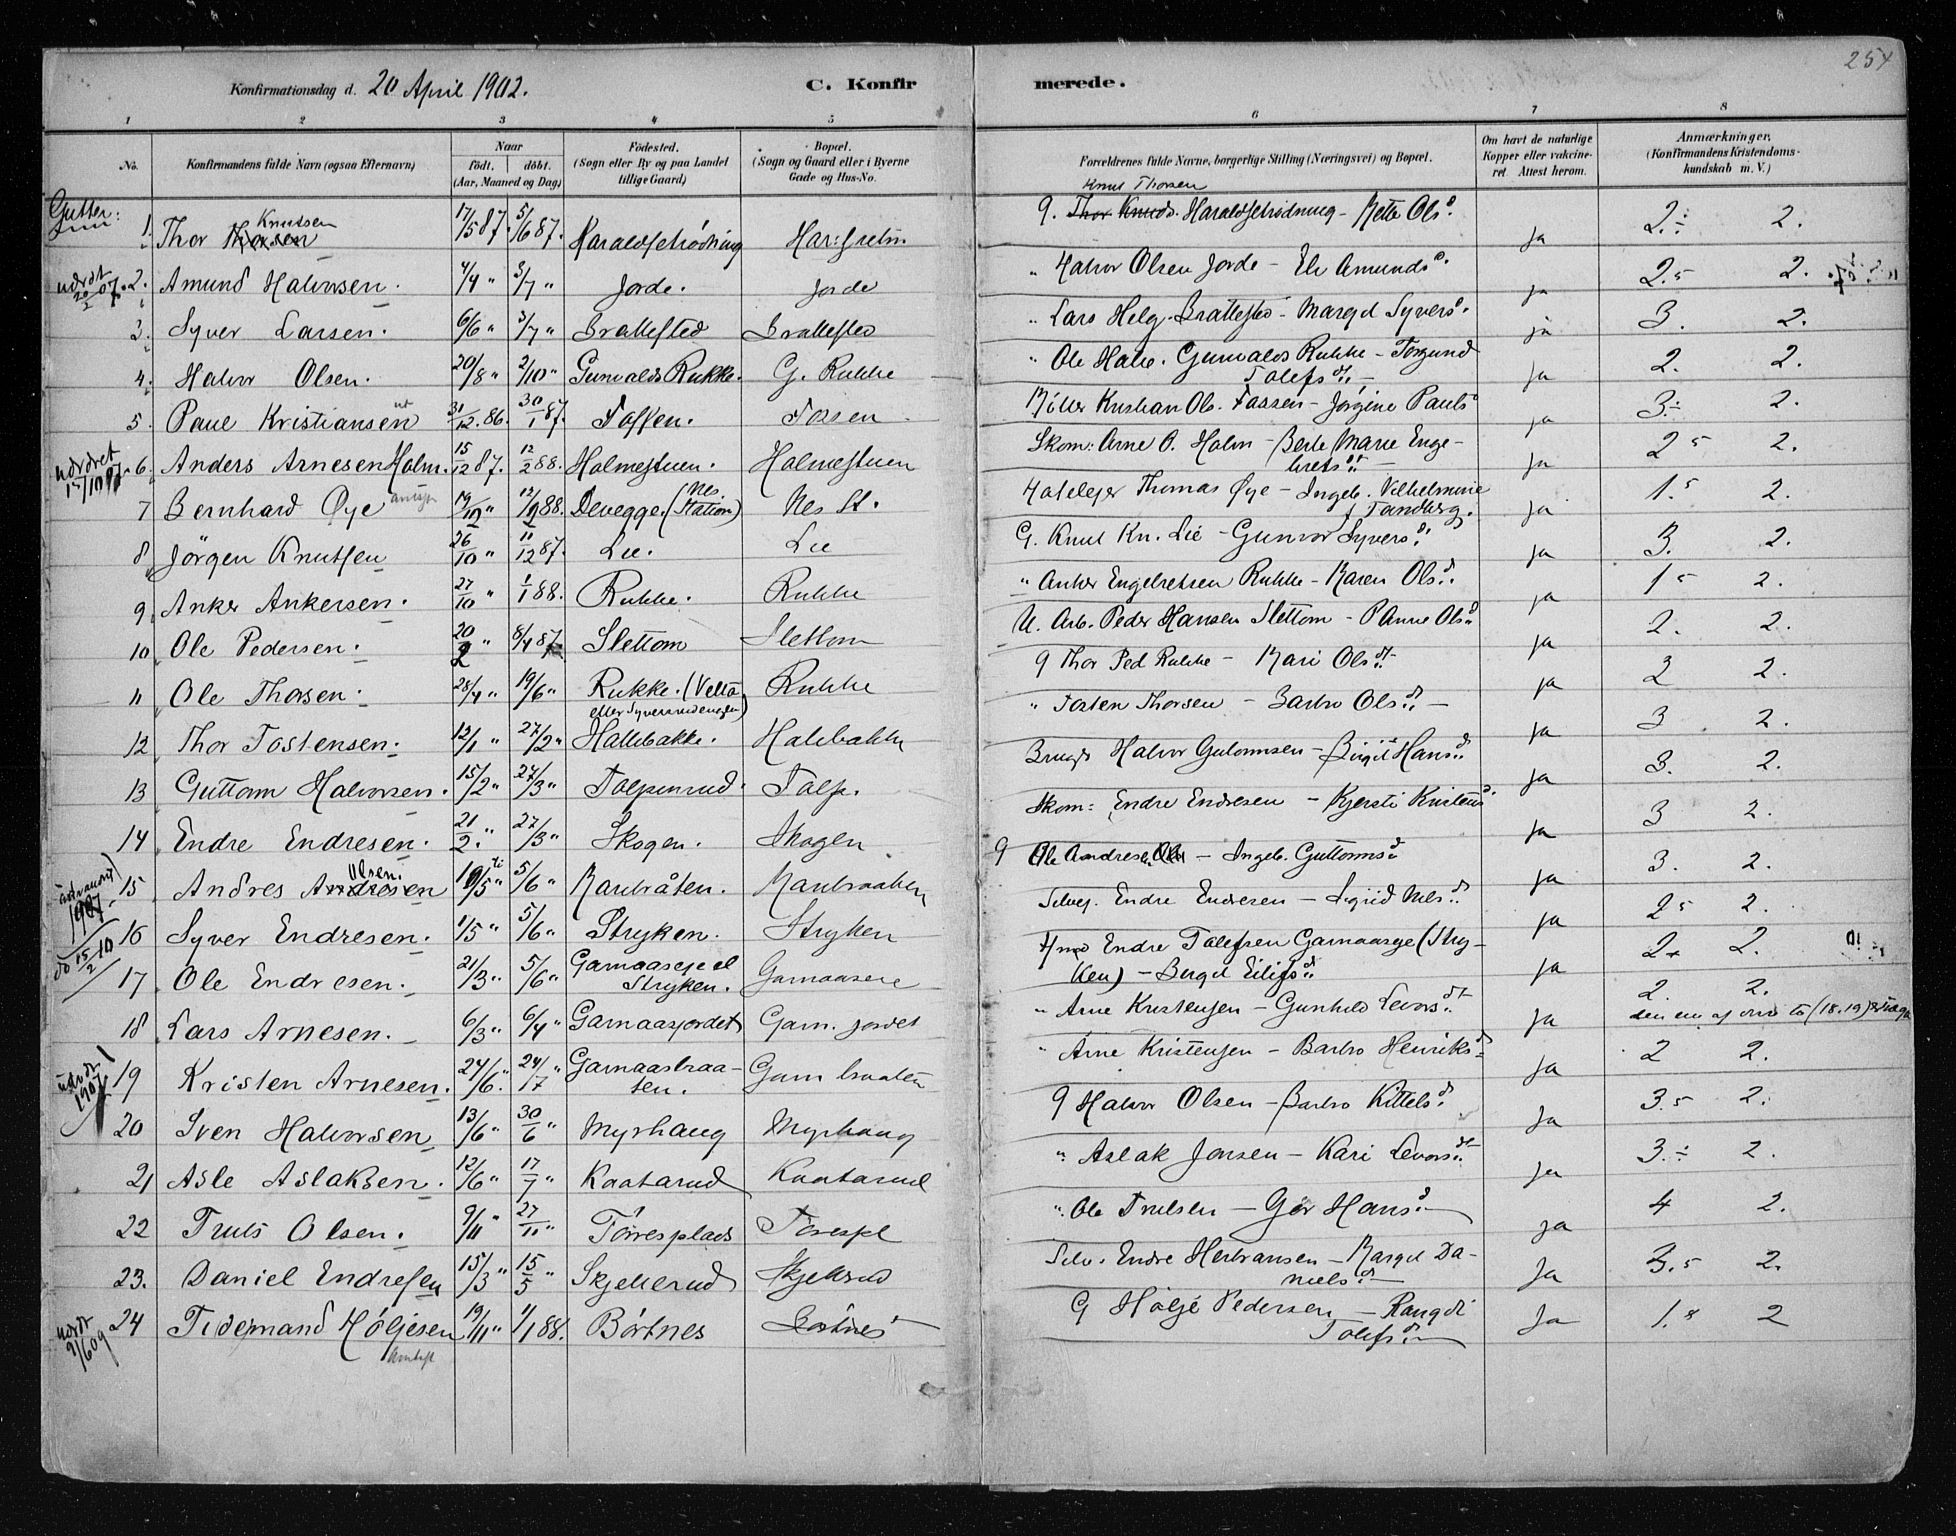 254
Konfirmationsdag d. 20 April 1902.
C. Konfir merede.
1 2 3 4 5 6 7 8
No. Konfirmandens fulde Navn (ogsaa Efternavn) Naar født, døbt. (Aar, Maaned og Dag.) Fødested. (Sogn eller By og paa Landet tillige Gaard) Bopæl. (Sogn og Gaard eller i Byerne Gade og Hus-No. Forældrenes fulde Navne, borgerlige Stilling (Næringsvei) og Bopæl. Om havt de naturlige Kopper eller vaccineret. Attest herom. Anmærkninger, (Konfirmandens Kristendomskundskab m. V.)
Gutter:
1. Thor Thorsen Knutsen 17/5 87. 5/6 87. Haraldsetrødning G. Thor Knuds. Knut Thorsen Haraldsetrødning - Mette Olsd. ja 2÷ 2.
2. Amund Halvorsen. 4/4 " 3/7 " Jorde. Jorde " Halvor Olsen Jorde - Eli Amundsd. ja 2.5 2.
3. Syver Larsen. 6/6 " 3/7 " Brattested Brattested " Lars Helg. Brattested - Margit Syversd. ja 3. 2.
4. Halvor Olsen. 20/8 " 2/10 " Gunvalds Rukke. G. Rukke " Ole Halv. Gunvalds Rukke - Torgund Tolefsd. ja 2. 2.
5. Paul Kristiansen 31/12.86. 30/1 87. Fossen. Fossen Møller Kristian Ol. Fossen - Jørgine Paulsd ja 3.÷ 2.
6. Anders Arnesen Holm. 15/12 87. 12/2 88. Holmestuen. Holmestuen Skom: Arne O. Holm - Berte Marie Engebretsd. ja 2 5 2.
7 Bernhard Øye 19/12 " 12/2 88. Devegge. (Nes Station) Nes St. Hotelejer Thomas Øye - Ingeb. Vilhelmine f. Tandberg. ja 1.5 2.
8 Jörgen Knutsen 26/10 " 11/12 87. Lie. Lie G. Knut Kn. Lie - Gunvor Syversd. ja 3. 2.
9. Anker Ankersen. 27/10 " 1/1 88. Rukke. Rukke " Anker Engebretsen Rukke - Karen Olsd. ja 1 5 2.
10. Ole Pedersen. 20/2 " 8/4 87 Slettom Slettom U. Arb. Peder Hansen Slettom - Anne Olsd ja 2. 2.
11 Ole Thorsen. 28/4 " 19/6 " Rukke. (Velta eller Syversrudengen) Rukke G Thor Ped Rukke - Kari Olsd. ja 2 2.
12 Thor Tostensen. 12/1 " 27/2 " Hallebakke. Hallebakke " Tosten Thorsen - Barbro Olsd. ja 3 2.
13 Guttom Halvorsen. 15/2 " 27/3 " Tolpinrud. Tolp. Brugs Halvor Gutormsen - Birgit Hansd. ja 3. 2.
14 Endre Endresen. 21/2. " 27/3 " Skogen. Skogen Skom: Endre Endresen - Kjersti Knutsd. ja 3 2.
15 Andres Andresen Olsen. 19/5 " 5/6 " Manbråten. Manbraaten G Ole Andresen - Ingeb. Guttormsd. ja 3. 2.
16 Syver Endresen. 1/5 " 5/6 " Stryken. Stryken Selvej. Endre Endresen - Sigrid Nilsd. ja 2 5 2.
17 Ole Endresen. 21/3 " 5/6 " Garnaaseje el Stryken. Garnaasere Hmd Endre Tolefsen Garnaaseje (Stryken) - Bergit Eilifsd. ja 2. 2.
18 Lars Arnesen. 6/3 " 6/4 " Garnaasjordet Garn. jordet " Arne Kristensen - Gunhild Levorsd. ja 2. 2.
19 Kristen Arnesen. 24/6. " 24/7 " Garnaasbraaten. Garn braaten " Arne Kristensen - Barbro Henriksd. ja 2 2.
20 Sven Halvorsen 13/6 " 30/6 " Myrhaug Myrhaug G Halvor Olsen - Barbro Kittelsd. ja 3.5 2.
21 Asle Aslaksen. 12/6 " 17/7 " Kaatarud Kaatarud " Aslak Jonsen - Kari Levorsd. ja 3.÷ 2.
22 Truls Olsen. 9/11 " 27/11 " Torresplads Torrespl " Ole Trulsen - Gør Hansd. ja 4 2.
23. Daniel Endresen 15/3 " 15/5 " Skjellerud Skjellerud Selv. Endre Herbransen - Margit Danielsd. ja 3.5 2.
24 Tidemand Höljesen 19/11 " 1/1 88. Börtnes Börtnes G Höljé Pedersen - Rangdi Tolefsd. ja 1.8 2